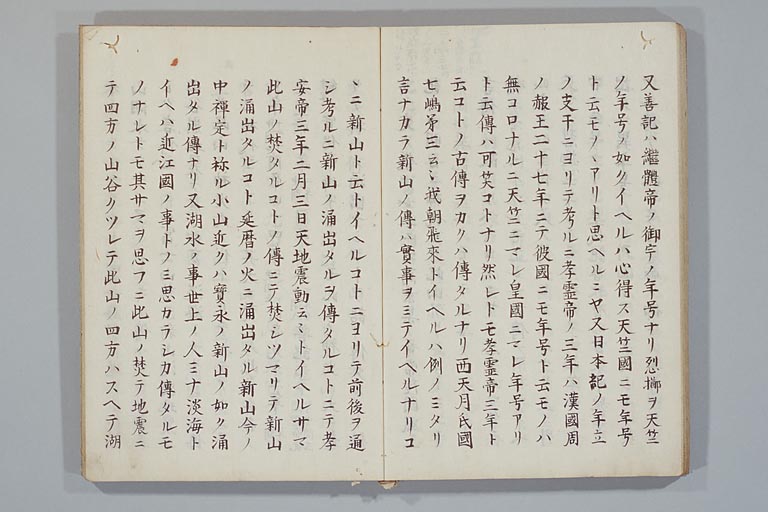 又善記ハ繼體帝ノ御宇ノ年号ナリ烈擲ヲ天竺
ノ年号ノ如クイヘルハ心得ス天竺國ニモ年号
ト云モノヽアリト思ヘルニヤス日本記ノ年立
ノ支干ニヨリテ考ルニ孝霊帝ノ三年ハ漢國周
ノ赧王二十七年ニテ彼國ニモ年号ト云モノハ
無コロナルニ天竺ニマレ皇國ニマレ年号アリ
ト云傳ハ可笑コトナリ然レトモ孝霊帝三年ト
云コトノ古傳ヲカクハ傳タルナリ西天月氏國
七嶋第三云〻我朝飛來トイヘルハ例ノミタリ
言ナカラ新山ノ傳ハ實事ヲミテイヘルナリコ
ヽニ新山ト云トイヘルコトニヨリテ前後ヲ通
シ考ルニ新山ノ涌出タルヲ傳タルコトニテ孝
安帝三年二月三日天地震動云〻トイヘルサマ
此山ノ焚タルコトノ傳ニテ焚シツマリテ新山
ノ涌出タルコト延暦ノ火ニ涌出タル新山今ノ
中禪定ト称ル小山近クハ寶永ノ新山ノ如ク涌
出タル傳ナリ又湖水ノ事世上ノ人ミナ淡海ト
イヘハ近江國ノ事トノミ思カラシカ傳タルモ
ノナレトモ其サマヲ思フニ此山ノ焚テ地震ニ
テ四方ノ山谷クツレテ此山ノ四方ハスヘテ湖